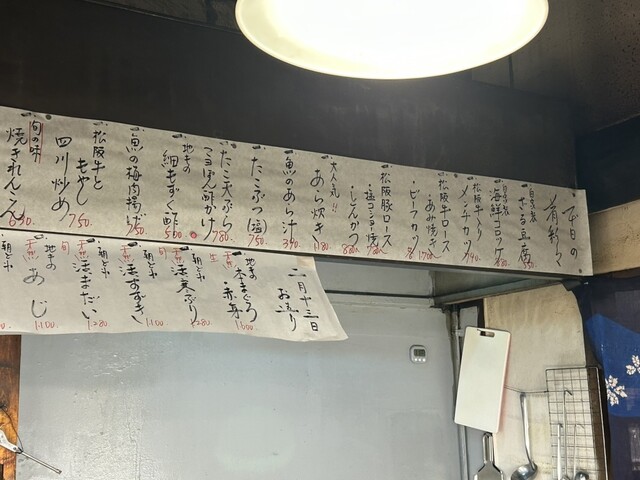 今日の
肴彩々
自家製
ざる豆腐
自家製
海鮮コロッケ
松阪牛入り
メンチカツ
松阪牛ロース
・あみ焼き
・ビーフカツ
松阪豚ロース
・塩コショー焼
・とんかつ
大人気!!
あら炊き
1180
魚のあら汁
390
たこぶつ(塩)
750
たこ天ぷら
マヨぽん酢かけ
780
地ものの
細もずく酢
500
魚の梅肉揚げ
750
松阪牛と
もやし
四川炒め
750
旬の味
焼きれんこん
690
二月十三日
お造り
地もの
生
本まぐろ
赤身
1600
朝どれ
天然
活天ぶり
1280
朝どれ
天然
活すずき
1100
朝どれ
旬
天然
活まだい
1280
地もの
天然
あじ
1100
朝どれ
天然